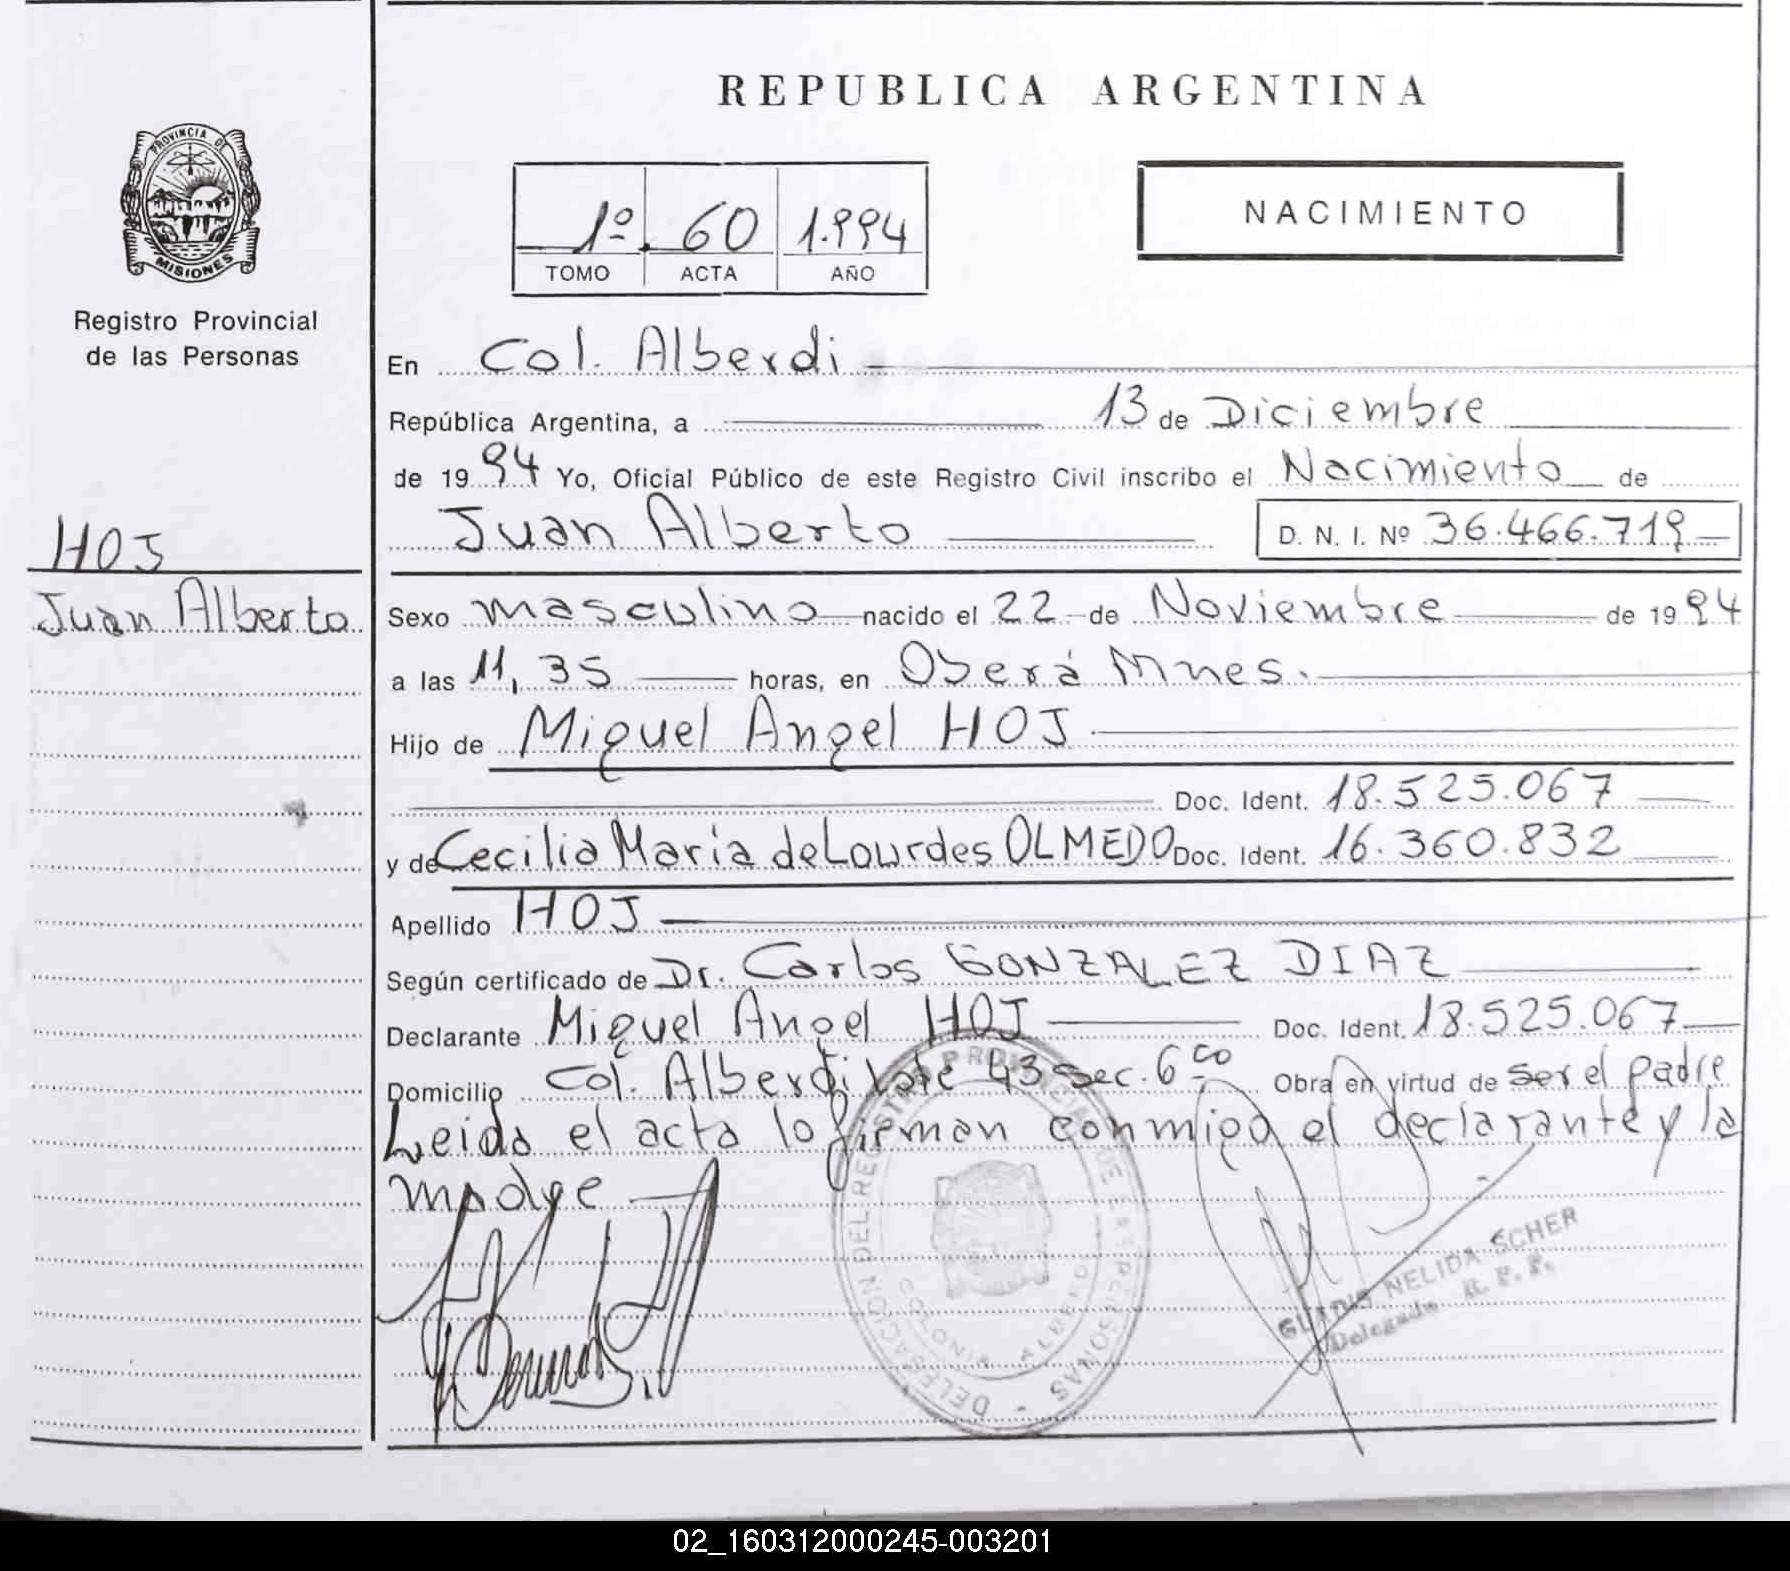 REPUBLICA ARGENTINA
PROVINCIA DE
MISIONES
Registro Provincial
de las Personas
1º 60 1.994
TOMO ACTA AÑO
NACIMIENTO
En Col. Alberdi
República Argentina, a 13 de Diciembre
de 1994 Yo, Oficial Público de este Registro Civil inscribo el Nacimiento de
Juan Alberto D. N. I. Nº 36.466.719
HOJ
Juan Alberto
Sexo masculino nacido el 22 de Noviembre de 1994
a las 11,35 horas, en Oberá Mnes.
Hijo de Miguel Angel HOJ
Doc. Ident. 18.525.067
y de Cecilia María de Lourdes OLMEDO Doc. Ident. 16.360.832
Apellido HOJ
Según certificado de Dr. Carlos GONZALEZ DIAZ
Declarante Miguel Angel HOJ Doc. Ident. 18.525.067
Domicilio Col. Alberdi Lote 43 Sec. 6ta Obra en virtud de ser el padre
Leida el acta lo firman conmigo el declarante y la
madre
DELEGACION DEL REGISTRO PROVINCIAL DE LAS PERSONAS
COLONIA ALBERDI
GLADIS NELIDA SCHER
Delegada R. P. P.
02_160312000245-003201